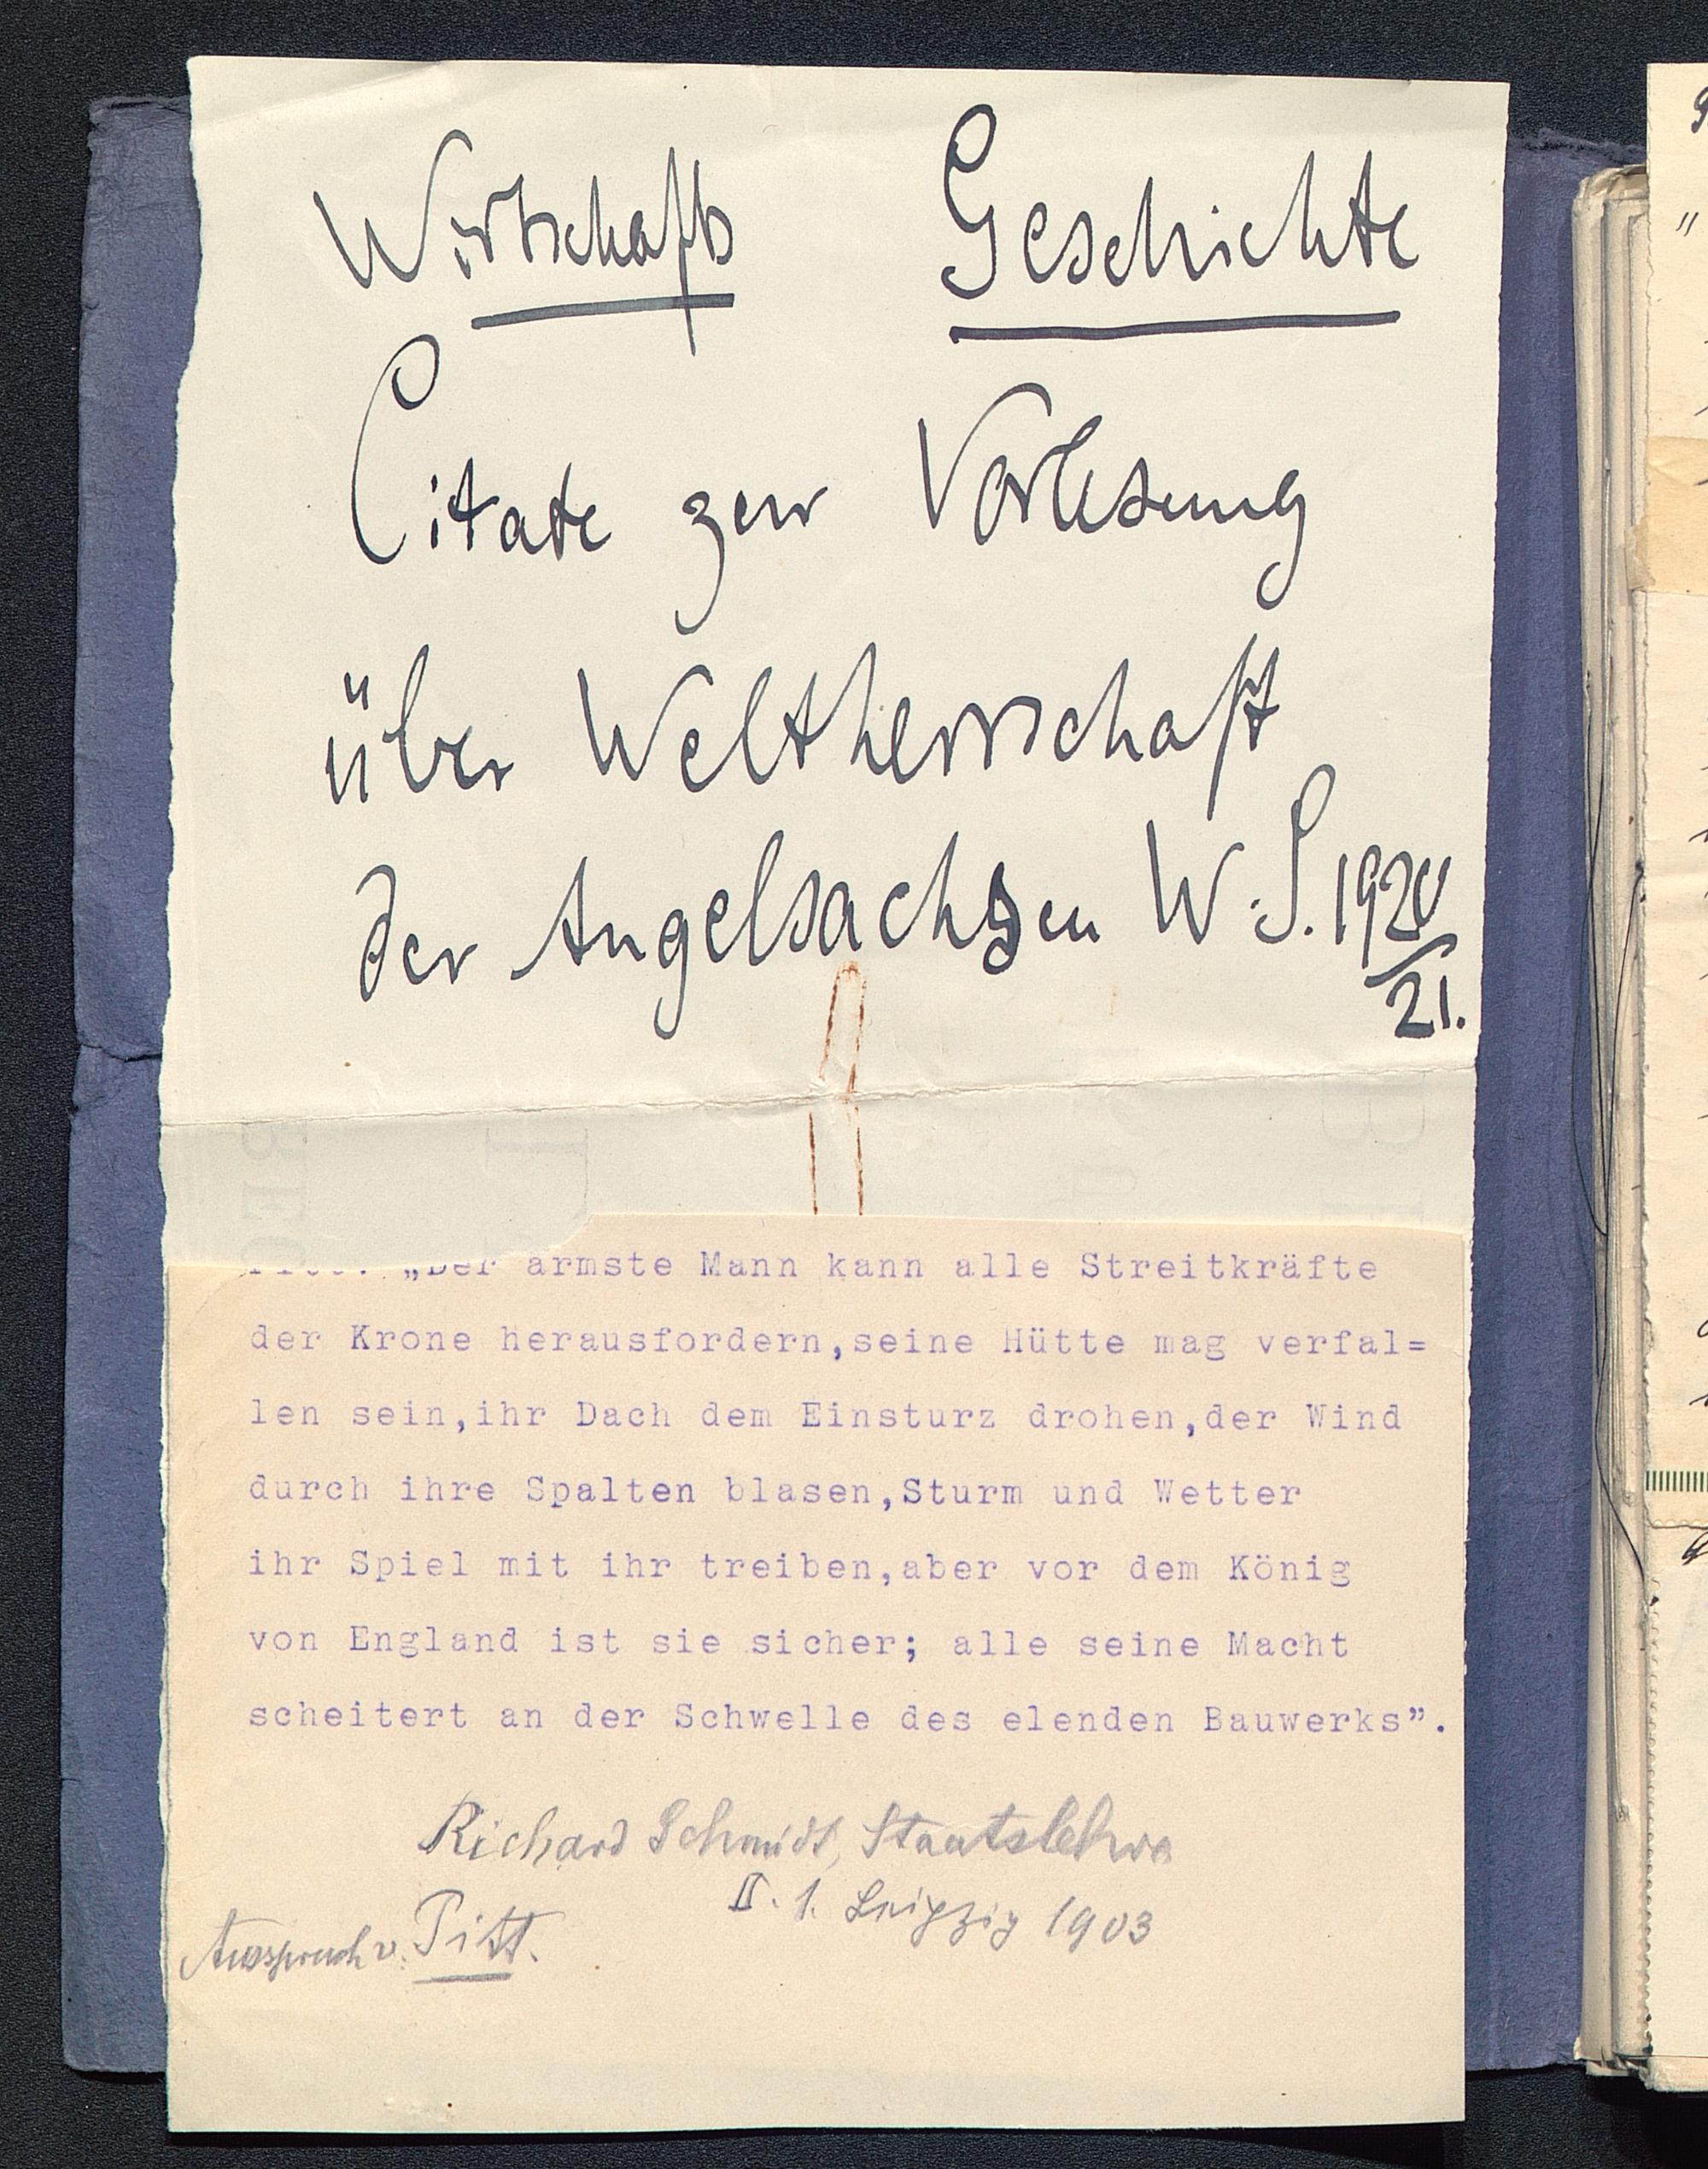 Wirtschafts Geschichte
Citate zur Vorlesung
über Weltherrschaft
der Angelsachsen W.S. 1920
/21.
„Der ärmste Mann kann alle Streitkräfte
der Krone herausfordern,seine Hütte mag verfal=
len sein,ihr Dach dem Einsturz drohen,der Wind
durch ihre Spalten blasen,Sturm und Wetter
ihr Spiel mit ihr treiben,aber vor dem König
von England ist sie sicher; alle seine Macht
scheitert an der Schwelle des elenden Bauwerks”.
Richard Schmidt, Staatslehre
II. 1. Leipzig 1903
Ausspruch v. Pitt.